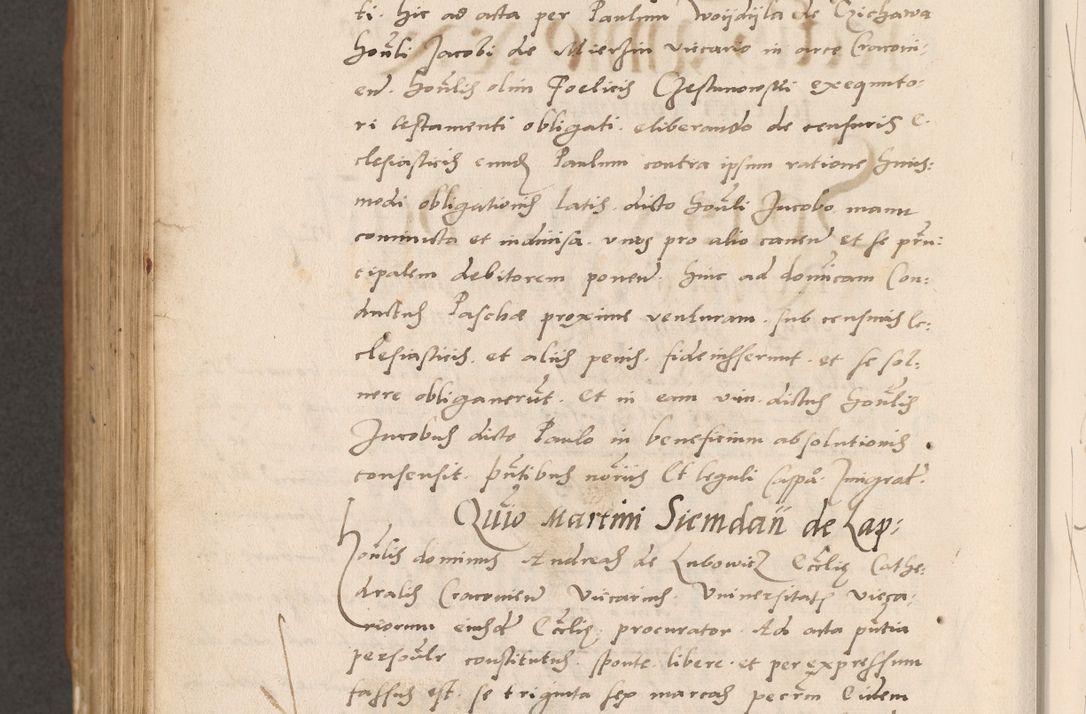 ti. hic ad acta per Paulum Woijdijla de Czichawa
hon̄li Jacobi de Mierzin vicario in arce Cracoui:
eñ. hon̄lis olim Foelicis Czestunowski exequuto-
ri testamenti obligati. eliberando de censuris E:
clesiasticis eund Paulum contra ipsum ratione huius:
modi obligationis latis. dicto hon̄li Jacobo. manu
coniuncta et indiuisa. vnus pro alio caueñ et se prin:
cipalem debitorem poneñ. hinc ad domīcam Con:
ductus Paschae proxime venturam. sub censuris Ec:
clesiasticis. et aliis penis. fideiusserunt. et se sol:
uere obligauerūt. Et in eum vim. dictus hon̄lis
Jacobus dicto Paulo in beneficium absolutionis
consensit. p̄ntibus nōriis Et leguli Caspā.
Quīo Martini Siemdaū de Lap:
Honlis dominus Andreas de Lubowicz Ecclīe Cathe:
dralis Cracouieñ Vicarius. Vniuersitatis vicca:
riorum eiusdē Ecclīe procurator. Ad acta p̄ntia
personlr constitutus. sponte. libere. et per expressum
fassus est. se triginta sex marcas pecc̄m Eidem